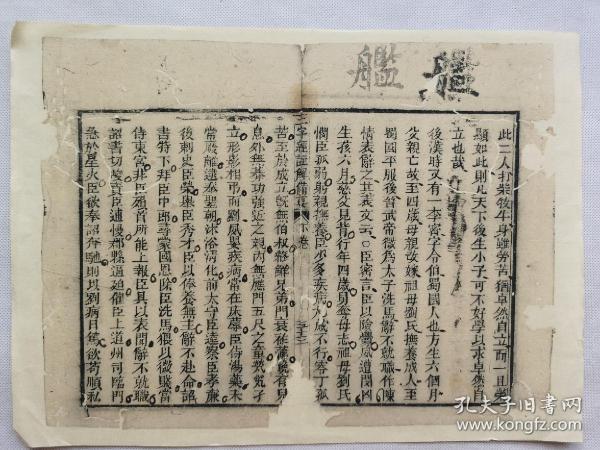 艦 艦
此二人打柴牧牛身雖勞苦猶卓然自立而一旦榮
顯如此則凡天下後生小子可不好學以求卓然自
立也哉
後漢時又有一李密字令伯蜀國人也方生六個月
父親亡故至四歲母親改嫁祖母劉氏撫養成人至
蜀國平服後晉武帝徵為太子洗馬辭不就職作陳
情表辭之其表文云臣密言臣以險釁夙遭閔凶
生孩六月慈父見背行年四歲舅奪母志祖母劉氏
憫臣孤弱躬親撫養臣少多疾病九歲不行零丁孤
三字經註解備要 下卷
苦至於成立既無伯叔終鮮兄弟門衰祚薄晚有兒
息外無期功強近之親內無應門五尺之童煢煢孑
立形影相弔而劉夙嬰疾病常在床蓐臣侍湯藥未
常廢離逮奉聖朝沐浴清化前太守臣逵察臣孝廉
後刺史臣榮舉臣秀才臣以供養無主辭不赴命詔
書特下拜臣郎中尋蒙國恩除臣洗馬猥以微賤當
侍東宮非臣隕首所能上報臣具以表聞辭不就職
詔書切峻責臣逋慢郡縣逼迫催臣上道州司臨門
急於星火臣欲奉詔奔馳則以劉病日篤欲苟順私
孔夫子旧书网